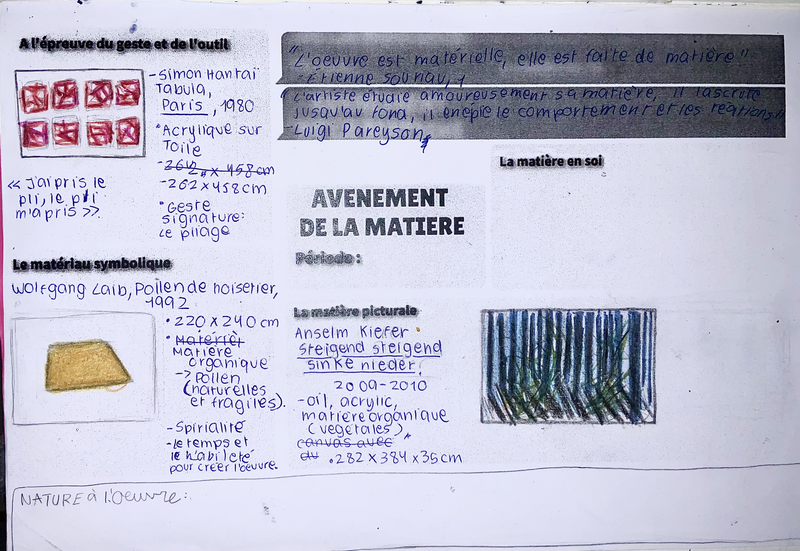 A l'épreuve du geste et de l'outil
- Simon Hantaï
Tabula,
Paris, 1980
• Acrylique sur
Toile
- 262 x 458 cm
- 262 x 458 cm
• Geste
signature:
Le pliage
« J'ai pris le
pli, le pli
m'a pris >>.
"L'oeuvre est matérielle, elle est faite de matière"
- Étienne Souriau,
L'artiste étudie amoureusement sa matière, il la scrute
jusqu'au fond, il en épie le comportement et les réactions
- Luigi Pareyson,
La matière en soi
AVENEMENT
DE LA MATIERE
Période :
Le matériau symbolique
Wolfgang Laib, Pollen de noisetier,
1992
• 220 x 240 cm
• Matérièl
Matière
organique
-> Pollen
(naturelles
et fragiles).
- Spirialité
- le temps et
le habileté
pour créer l'oeuvre.
La matière picturale
Anselm Kiefer
Steigend steigend
sinke nieder,
2009-2010
- oil, acrylic,
matière organique
(végétales),
canvas avec
du
• 282 x 384 x 35 cm
NATURE à l'oeuvre: